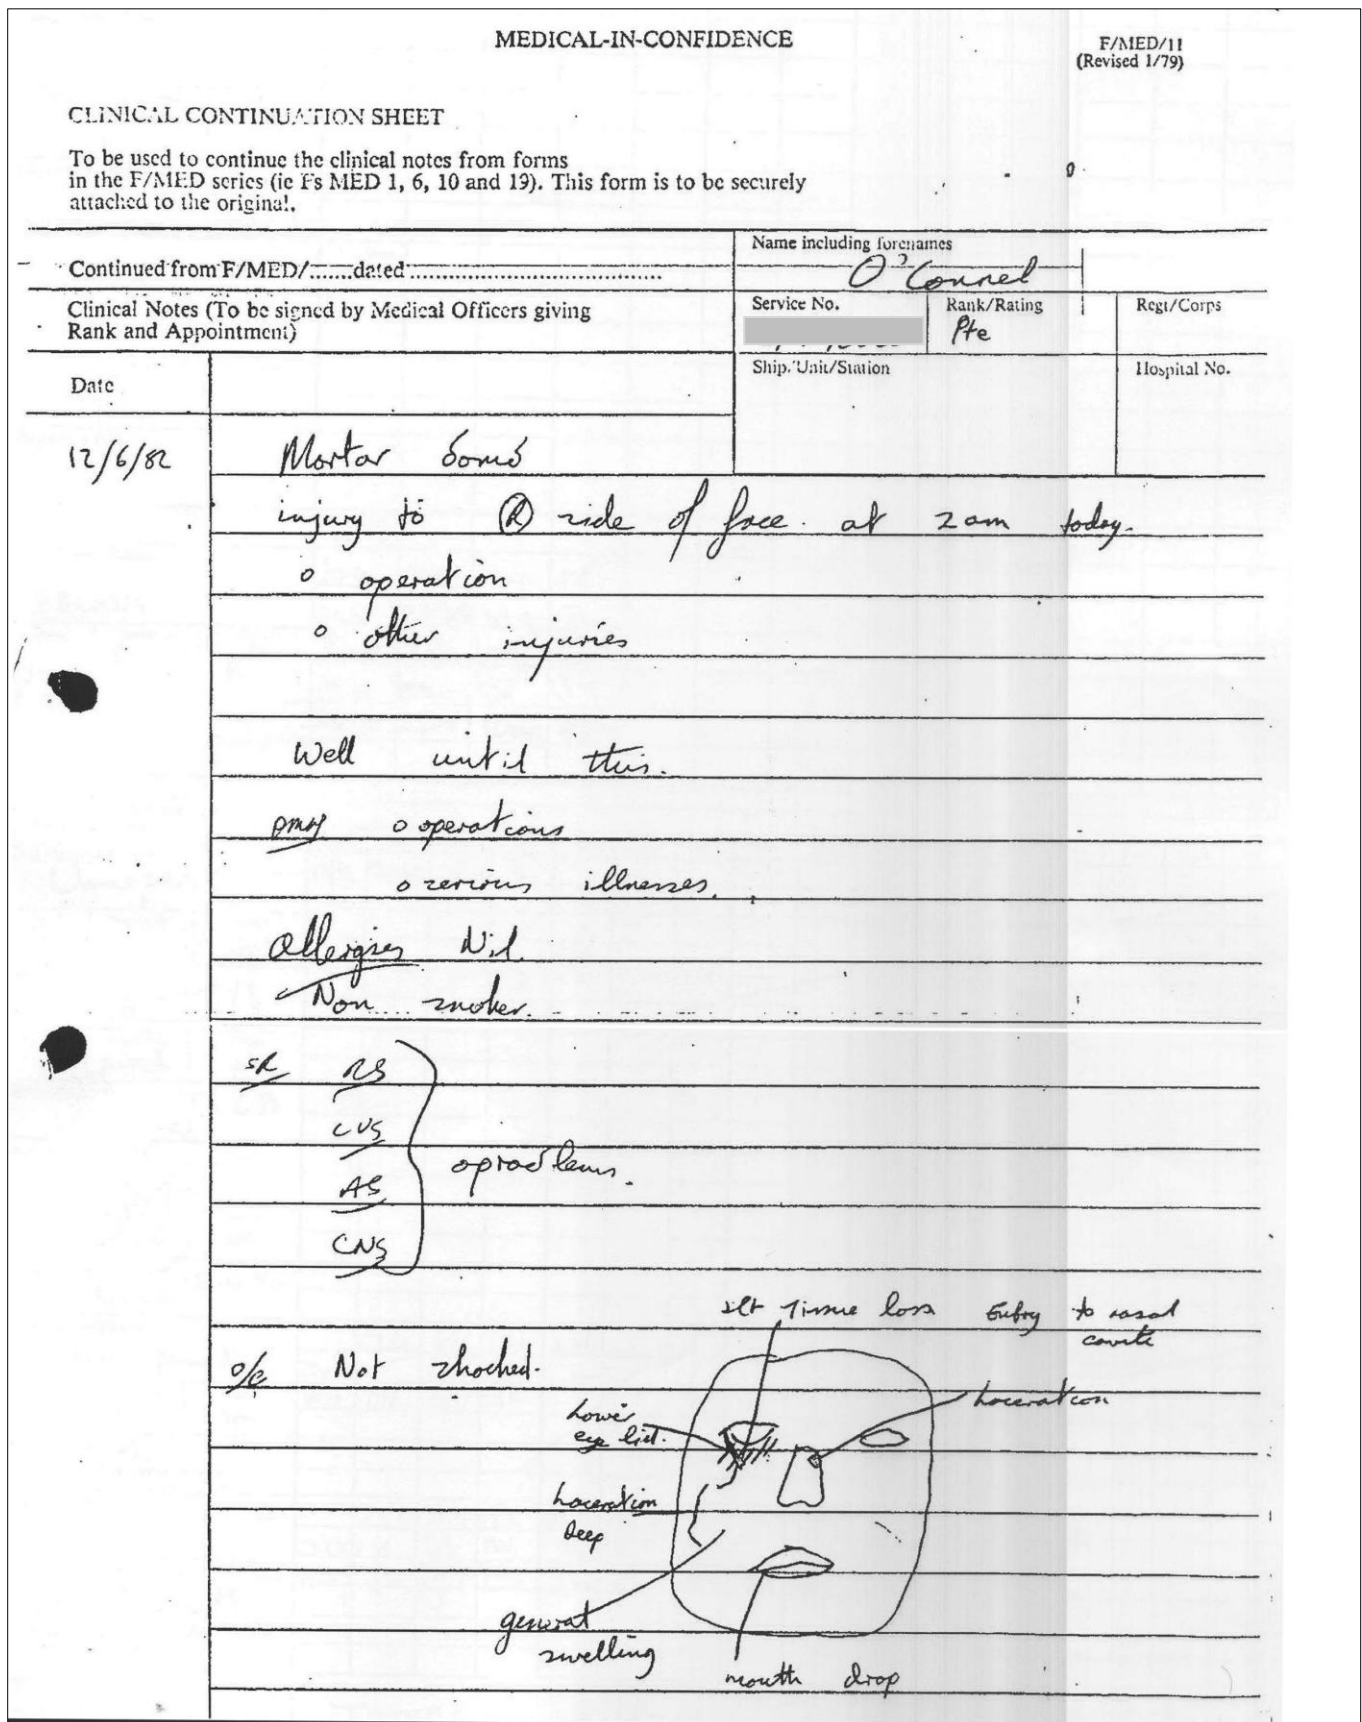 MEDICAL-IN-CONFIDENCE
F/MED/11
(Revised 1/79)
CLINICAL CONTINUATION SHEET
To be used to continue the clinical notes from forms
in the F/MED series (ie Fs MED 1, 6, 10 and 19). This form is to be securely
attached to the original.
Continued from F/MED/.......dated......................................
Name including forenames
O'Connel
Clinical Notes (To be signed by Medical Officers giving
Rank and Appointment)
Service No.
Rank/Rating
Pte
Regt/Corps
Date
Ship/Unit/Station
Hospital No.
12/6/82
Mortar bomb
injury to (R) side of face. at 2 am today.
o operation
o other injuries
Well until this.
PMH o operations
o serious illnesses.
Allergies Nil.
Non smoker.
SR RS
CVS
AS
CNS
o problems.
slt tissue loss
Entry to nasal
o/e Not shocked.
Laceration
Lower
eye lid.
Laceration
deep
general
swelling
mouth drop